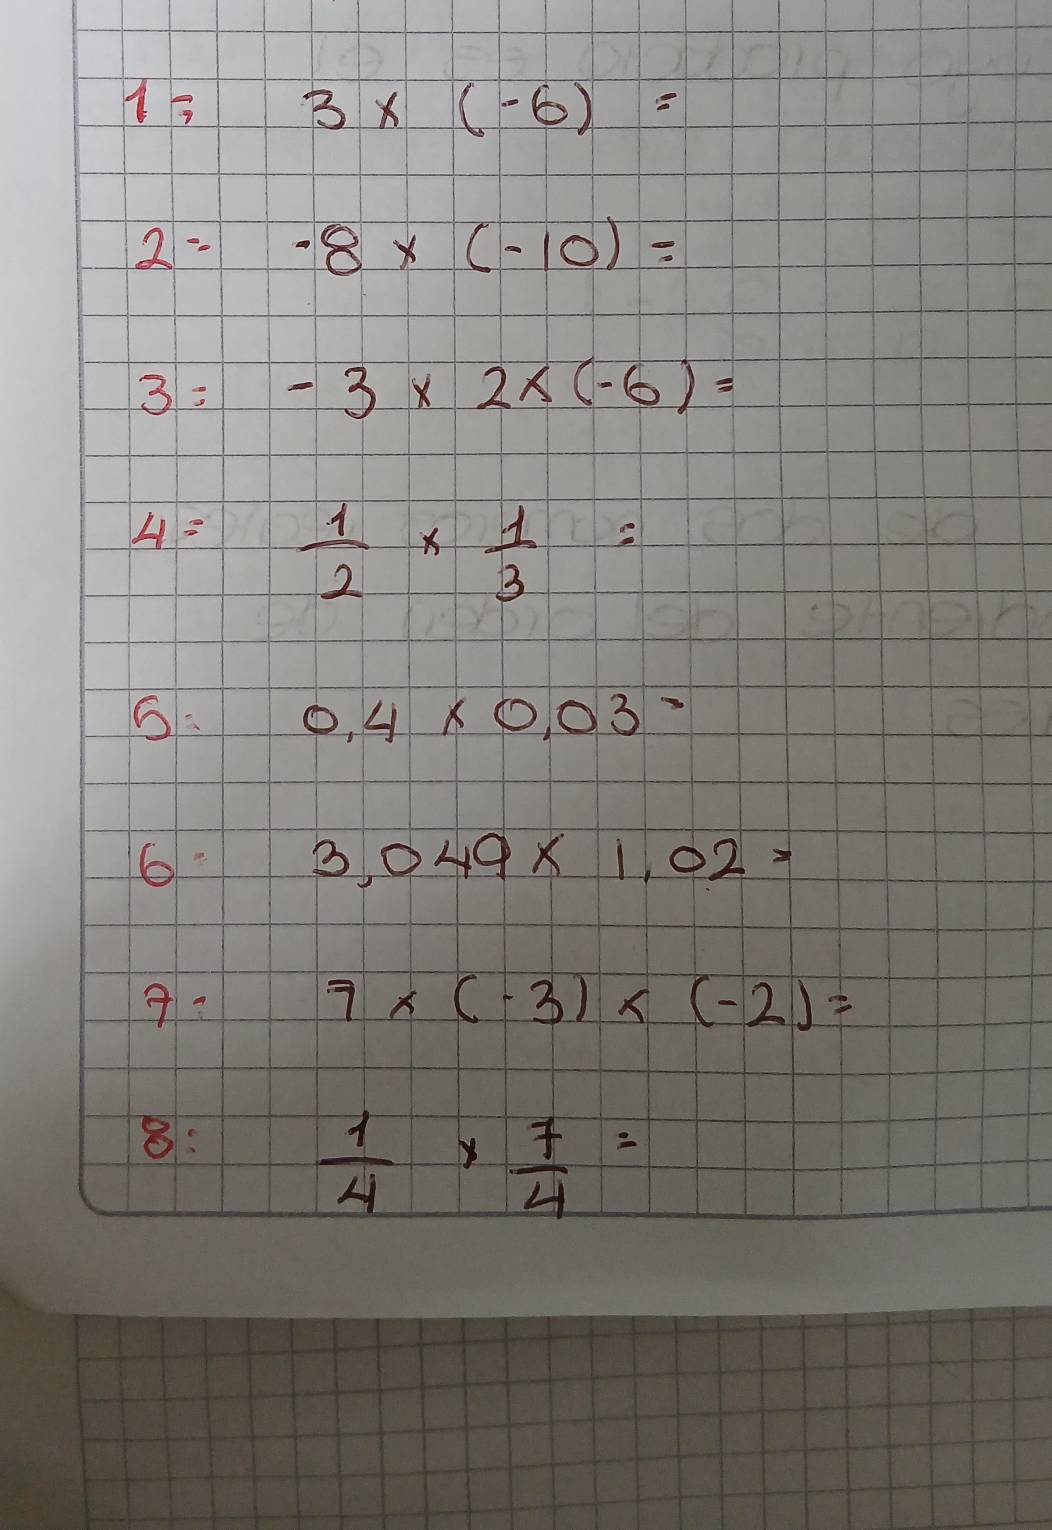 1= 3 × (-6) =
2= -8 × (-10) =
3= -3 × 2 × (-6) =
4= 1/2 × 1/3 =
5= 0,4 × 0,03 =
6= 3,049 × 1,02 =
7= 7 × (-3) × (-2) =
8= 1/4 × 7/4 =